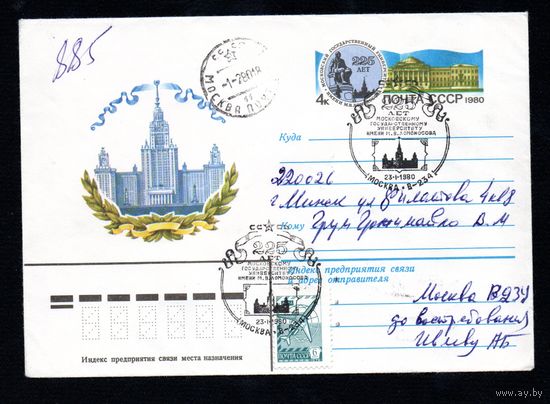 885
МОСКВА
МОСКОВСКИЙ ГОСУДАРСТВЕННЫЙ УНИВЕРСИТЕТ
225
ЛЕТ
4к
ПОЧТА СССР 1980
225
ЛЕТ
МОСКОВСКОМУ
ГОСУДАРСТВЕННОМУ
УНИВЕРСИТЕТУ
ИМЕНИ М.В.ЛОМОНОСОВА
23-1-1980
МОСКВА • В-234
Куда
220026
г Минск ул Филатова 4 кв 8
Кому
Грум Гржимайло В. М
СССР
225
ЛЕТ
МОСКОВСКОМУ
ГОСУДАРСТВЕННОМУ
УНИВЕРСИТЕТУ
ИМЕНИ М.В.ЛОМОНОСОВА
23-1-1980
МОСКВА • В-234
Индекс предприятия связи
и адрес отправителя
Москва В234
до востребования
АБ
ПОЧТА СССР 6
Индекс предприятия связи места назначения
ay.by